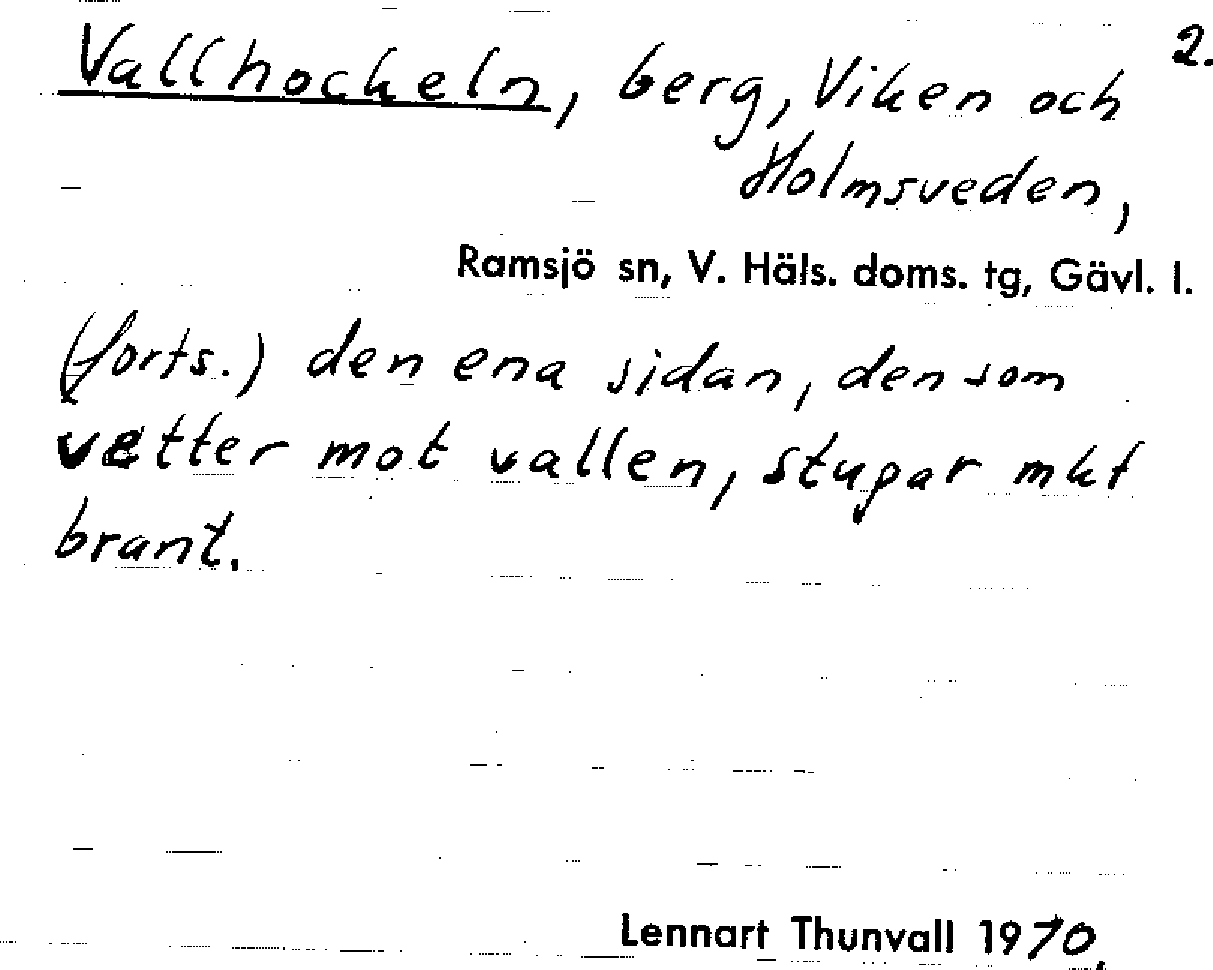 2.
Vallhockeln, berg, Viken och
Holmsveden,
Ramsjö sn, V. Häls. doms. tg, Gävl. l.
(forts.) den ena sidan, den som
vetter mot vallen, stupar mkt
brant.
Lennart Thunvall 1970.